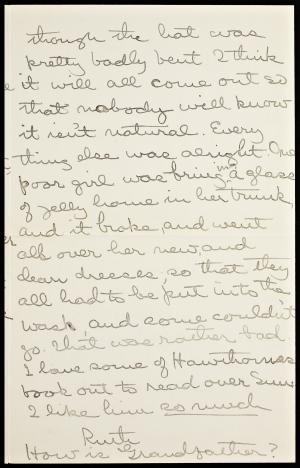 though the hat was
pretty badly bent I think
it will all come out so
that nobody will know
it isn't natural. Every
thing else was alright. One
poor girl was bringing a glass
of jelly home in her trunk,
and it broke, and went
all over her new, and
clean dresses, so that they
all had to be put into the
wash, and some couldn't
go. That was rather bad.
I love some of Hawthornes
book out to read over Sun.
I like him so much
Ruth
How is Grandfather?